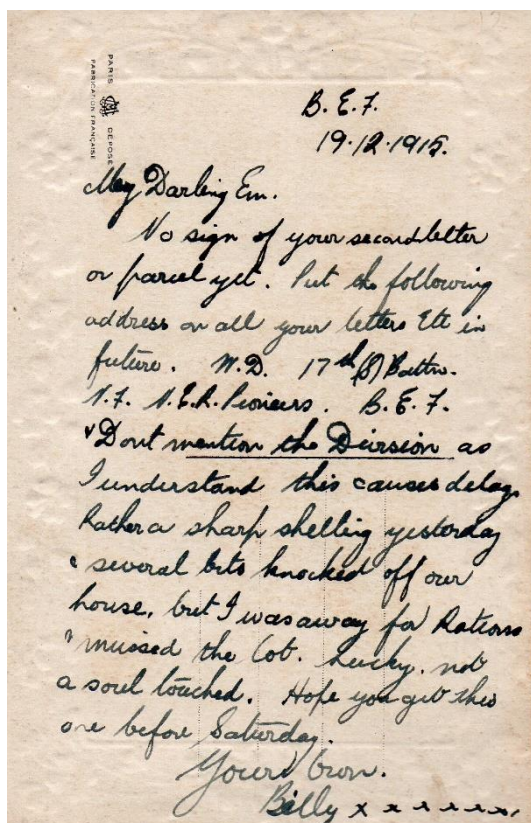 PARIS DEPOSE
FABRICATION FRANÇAISE
B.E.F.
19.12.1915.
My Darling Em.
No sign of your second letter
or parcel yet. Put the following
address on all your letters Etc in
future. W.D. 17th (S) Battn.
N.F. N.E.R. Pioneers. B.E.F.
& Dont mention the Division as
I understand this causes delay.
Rather a sharp shelling yesterday
& several bits knocked off our
house, but I was away for Rations
& missed the lot. Lucky. not
a soul touched. Hope you get this
one before Saturday.
Yours Own.
Billy x x x x x x x